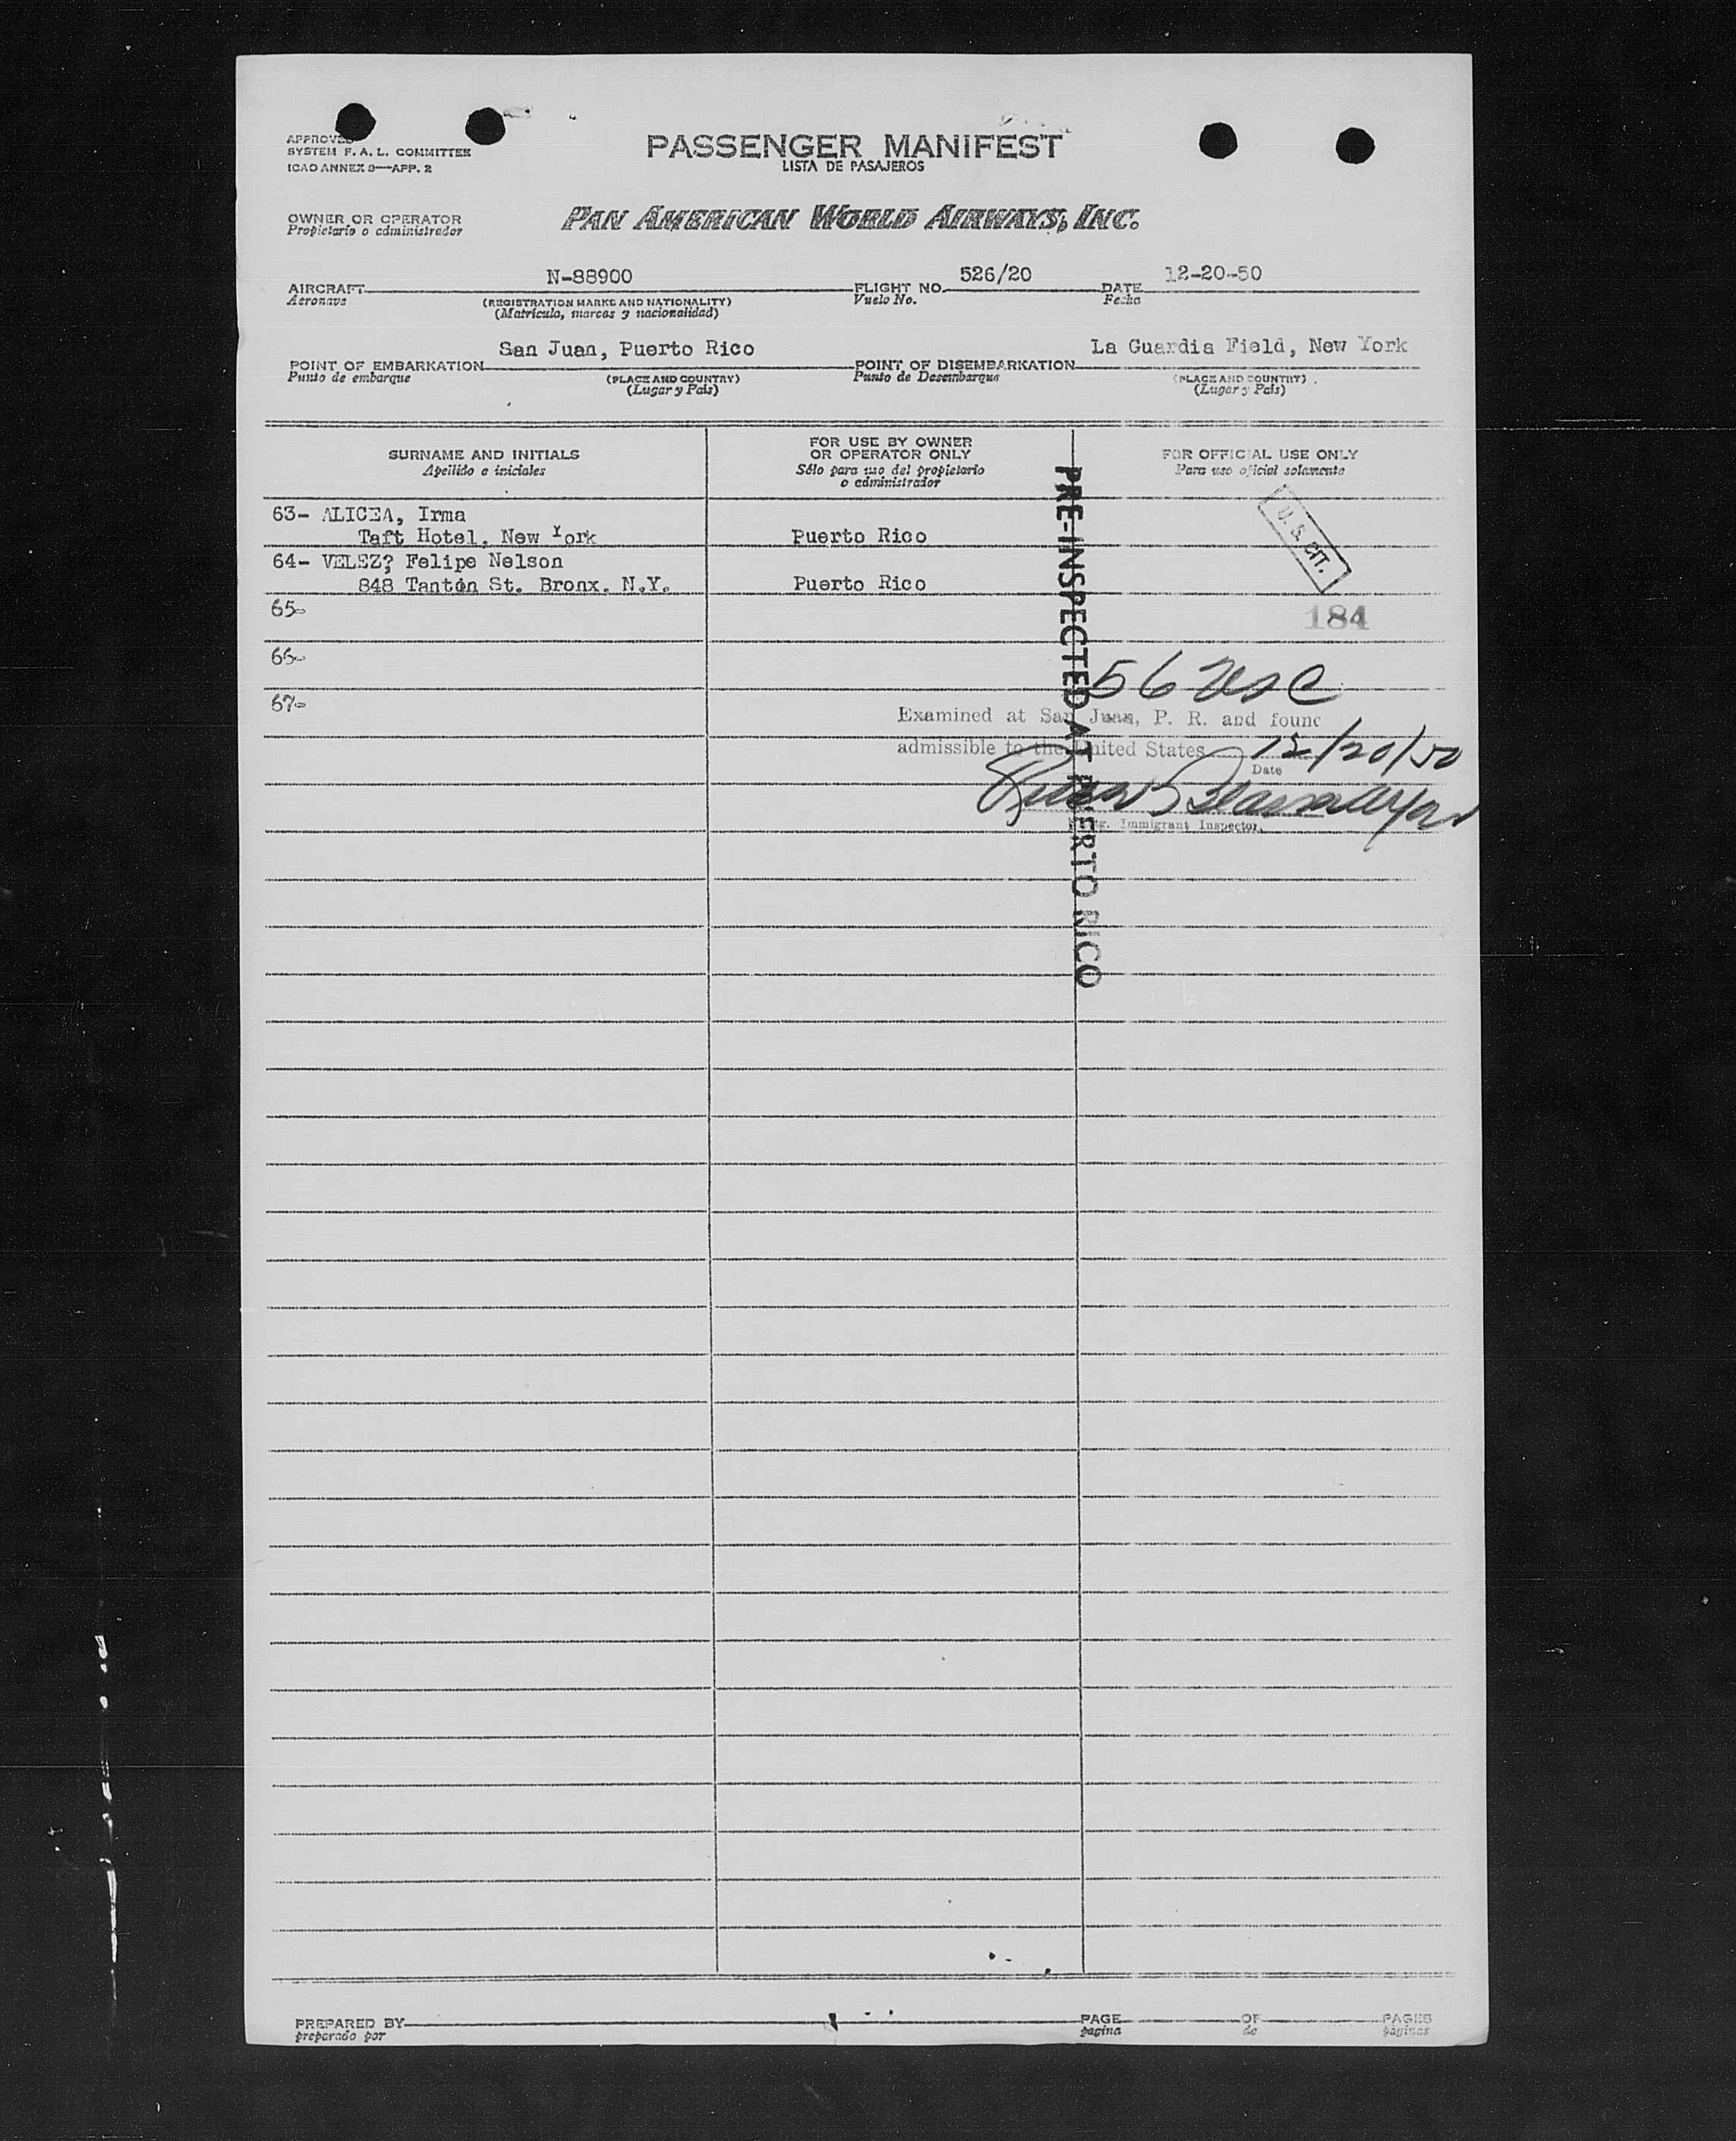 APPROVED
SYSTEM F. A. L. COMMITTEE
ICAO ANNEX 9—APP. 2
PASSENGER MANIFEST
LISTA DE PASAJEROS
OWNER OR OPERATOR
Propietario o administrador
PAN AMERICAN WORLD AIRWAYS, INC.
AIRCRAFT N-88900 FLIGHT NO. 526/20 DATE 12-20-50
Aeronave (REGISTRATION MARKS AND NATIONALITY) Vuelo No. Fecha
(Matrícula, marcas y nacionalidad)
POINT OF EMBARKATION San Juan, Puerto Rico POINT OF DISEMBARKATION La Guardia Field, New York
Punto de embarque (PLACE AND COUNTRY) Punto de Desembarque (PLACE AND COUNTRY)
(Lugar y País) (Lugar y País)
SURNAME AND INITIALS
Apellido e iniciales
FOR USE BY OWNER
OR OPERATOR ONLY
Sólo para uso del propietario
o administrador
FOR OFFICIAL USE ONLY
Para uso oficial solamente
63- ALICEA, Irma
Taft Hotel, New York Puerto Rico
64- VELEZ? Felipe Nelson
848 Tanton St. Bronx, N.Y. Puerto Rico
65-
66-
67-
U. S. CIT.
184
PRE-INSPECTED AT PUERTO RICO
56 usc
Examined at San Juan, P. R. and found
admissible to the United States 12/20/50
Date
Immigrant Inspector.
PREPARED BY PAGE OF PAGES
preparado por página de páginas